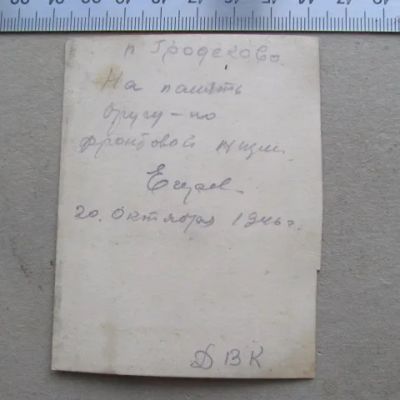 п Гродеково.
На память
другу - по
фронтовой
20. Октября 1946 г.
ДВК